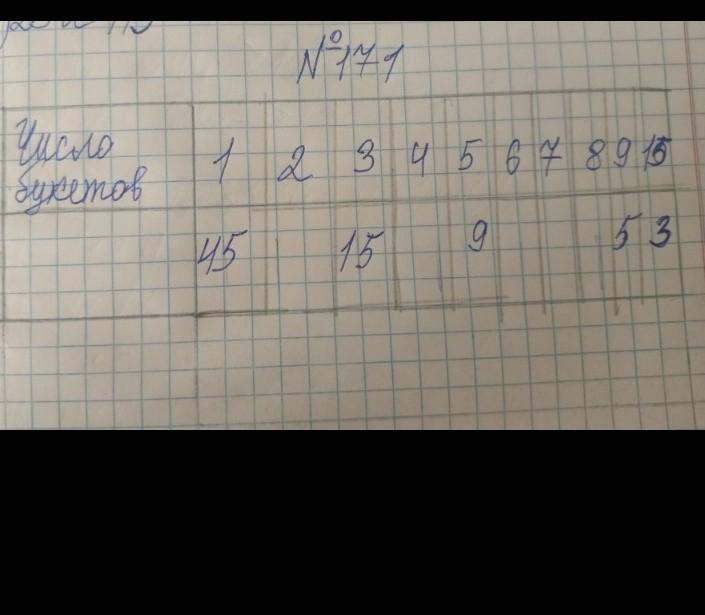 №171
Число букетов 1 2 3 4 5 6 7 8 9 15
45 15 9 5 3